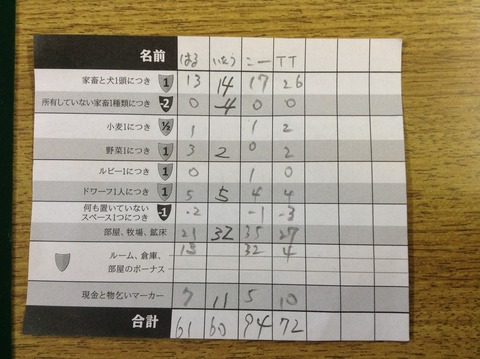 名前 はる いとう こー TT
家畜と犬1頭につき 1 13 14 17 26
所有していない家畜1種類につき -2 0 -4 0 0
小麦1につき ½ 1 1 2
野菜1につき 1 3 2 0 2
ルビー1につき 1 0 1 0
ドワーフ1人につき 1 5 5 4 4
何も置いていない
スペース1つにつき -1 -2 -1 -3
部屋、牧場、鉱床 21 32 35 27
ルーム、倉庫、 13 32 4
部屋のボーナス
現金と物乞いマーカー 7 11 5 10
合計 61 60 94 72